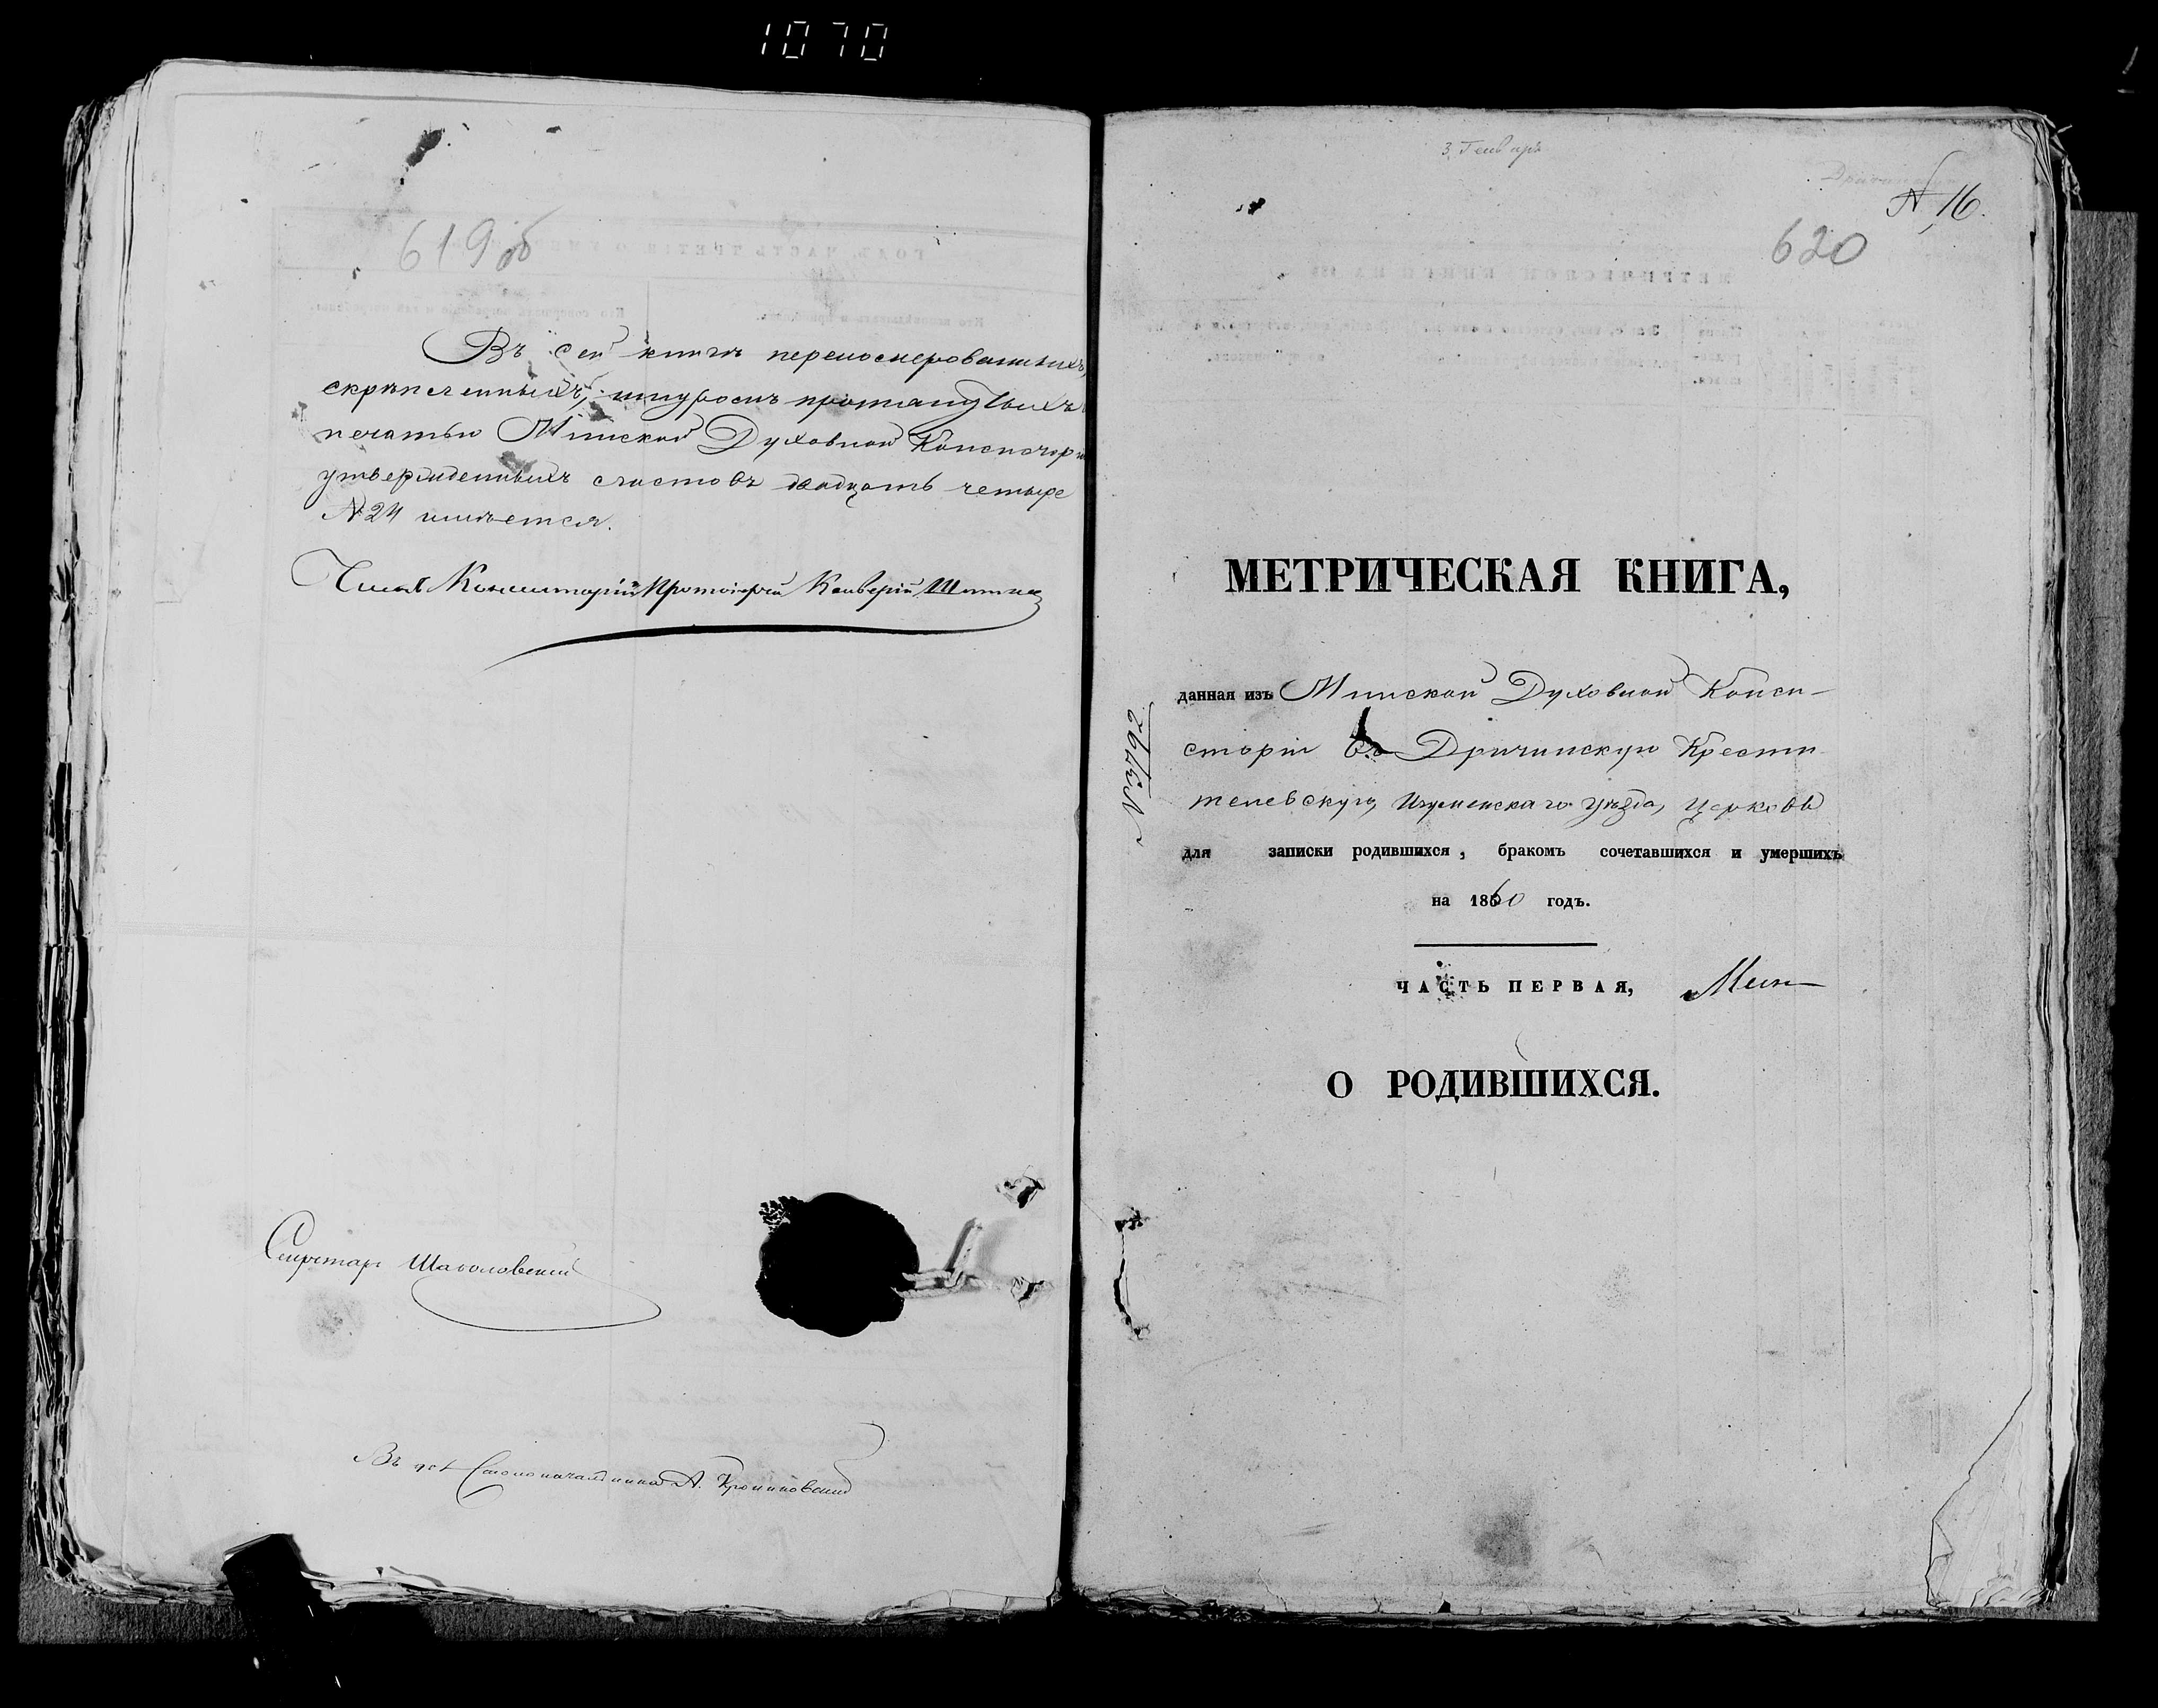 1070
619 об
Въ сей книгѣ переномерованныхъ,
скрѣпленныхъ, шнуромъ протянутыхъ
печатью Минской Духовной Консистор
утвержденныхъ листовъ двадцать четыре
№ 24 имѣется.
Членъ Консисторіи Протоіерей
Секретарь
Въ Столоначальника А.
3. Генваря
№ 16.
620
МЕТРИЧЕСКАЯ КНИГА,
данная изъ Минской Духовной Конси-
сторіи въ Дричинскую Крести
телевскую, Игуменскаго уѣзда, церковь
для записки родившихся, бракомъ сочетавшихся и умершихъ
на 1860 годъ.
ЧАСТЬ ПЕРВАЯ,
О РОДИВШИХСЯ.